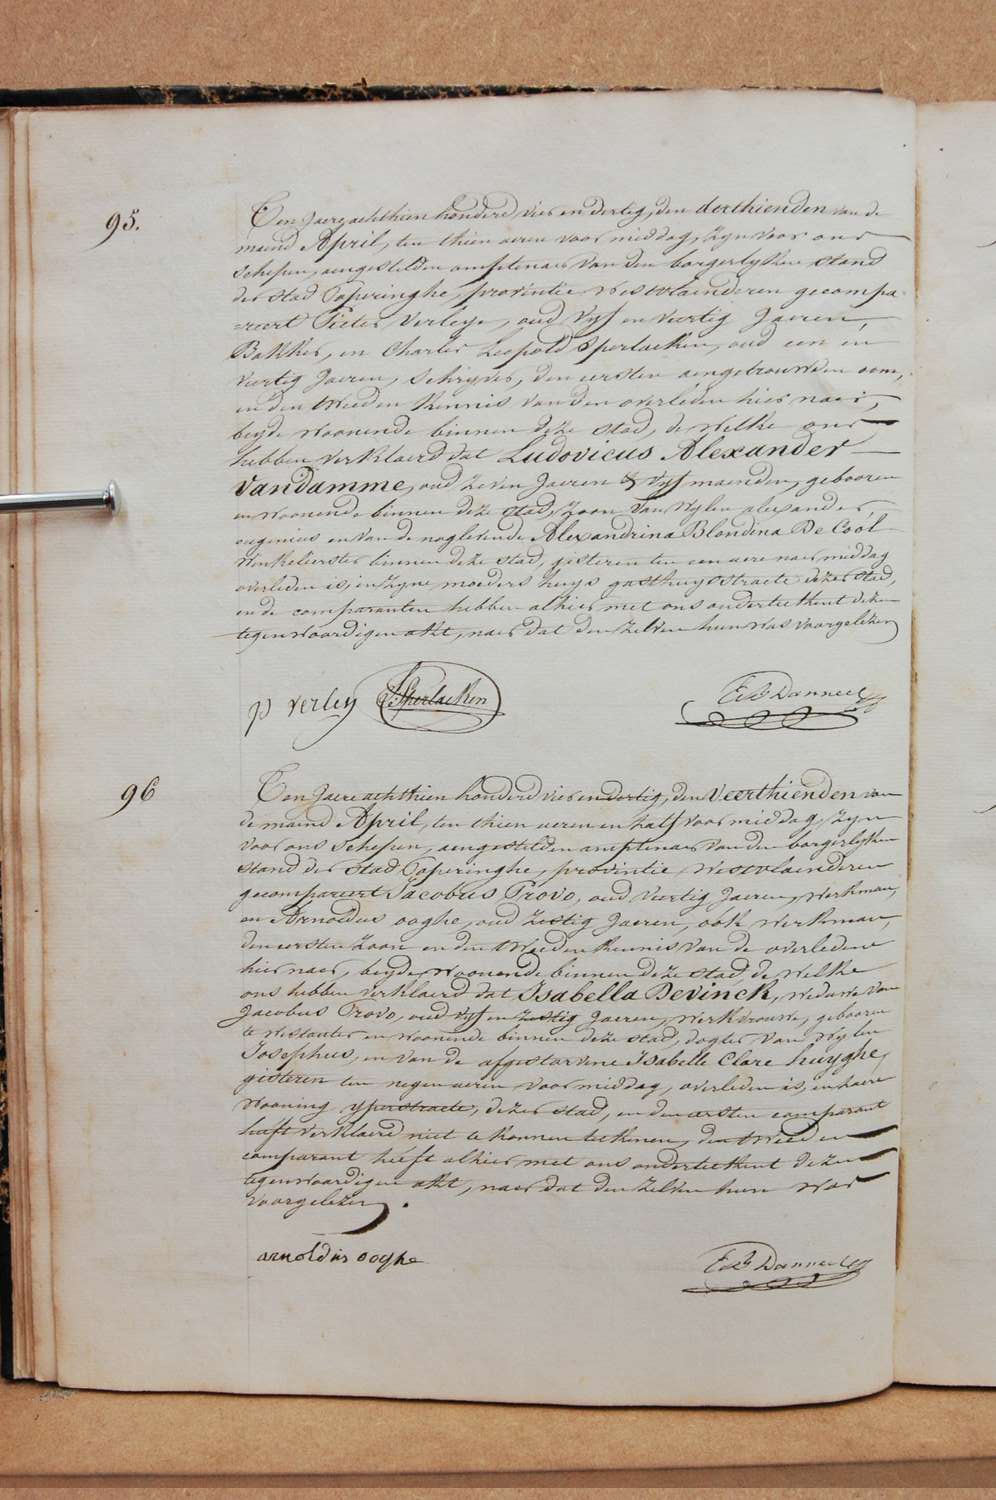 95.
Ten Jaere achthien honderd vier en dertig, den derthienden van de
maend April, ten thien ueren voor middag, zyn voor ons
schepen, aengestelden amptenaer van den borgerlyken stand
der stad Poperinghe, provintie Westvlaenderen gecompa-
=reert Pieter Verleye, oud vyf en veertig Jaeren,
Bakker, en Charles Leopold Sperlaeken, oud een en
veertig Jaeren, schryver, den eersten aengetrouwden oom,
en den tweeden kennis van den overleden hier naer,
beyde woonende binnen deze stad, de welke ons
hebben verklaerd dat Ludovicus Alexander
Vandamme, oud zeven Jaeren & vyf maenden, gebooren
en woonende binnen deze stad, zoon van wylen alexander,
eugenius en van de naglevende Alexandrina Blondina De Cool
Winkelierster binnen deze stad, gisteren ten een uere naer middag
overleden is, in zyne moeders huys gasthuysstraete dezer stad,
en de comparanten hebben alhier met ons onderteekent dezen
tegenwoordigen akt, naer dat den zelven hun was voorgelezen
p verley C.L.Sperlaeken
96
Ten Jaere achthien honderd vier en dertig, den Veerthienden van
de maend April, ten thien ueren en half voor middag, zyn
voor ons schepen, aengestelden amptenaer van den borgerlyken
stand der stad Poperinghe, provintie Westvlaenderen
gecompareert Jacobus Provo, oud veertig Jaeren, werkman,
en Arnoldus ooghe, oud zestig Jaeren, ook werkman,
den eersten zoon en den tweeden kennis van de overledene
hier naer, beyde woonende binnen deze stad, de welke
ons hebben verklaerd dat Isabella Devinck, weduwe van
Jacobus Provo, oud vyf en zestig Jaeren, werkvrouwe, gebooren
te westouter en woonende binnen deze stad, dogter van wylen
Josephus, en van de afgestorvene Isabelle Clare huyghe,
gisteren ten negen ueren voor middag, overleden is, in haere
wooning yperstraete, dezer stad, en den eersten comparant
heeft verklaerd niet te konnen teekenen, den tweeden
comparant heeft alhier met ons onderteekent dezen
tegenwoordigen akt, naer dat den zelven hun was
voorgelezen.
arnoldus ooghe